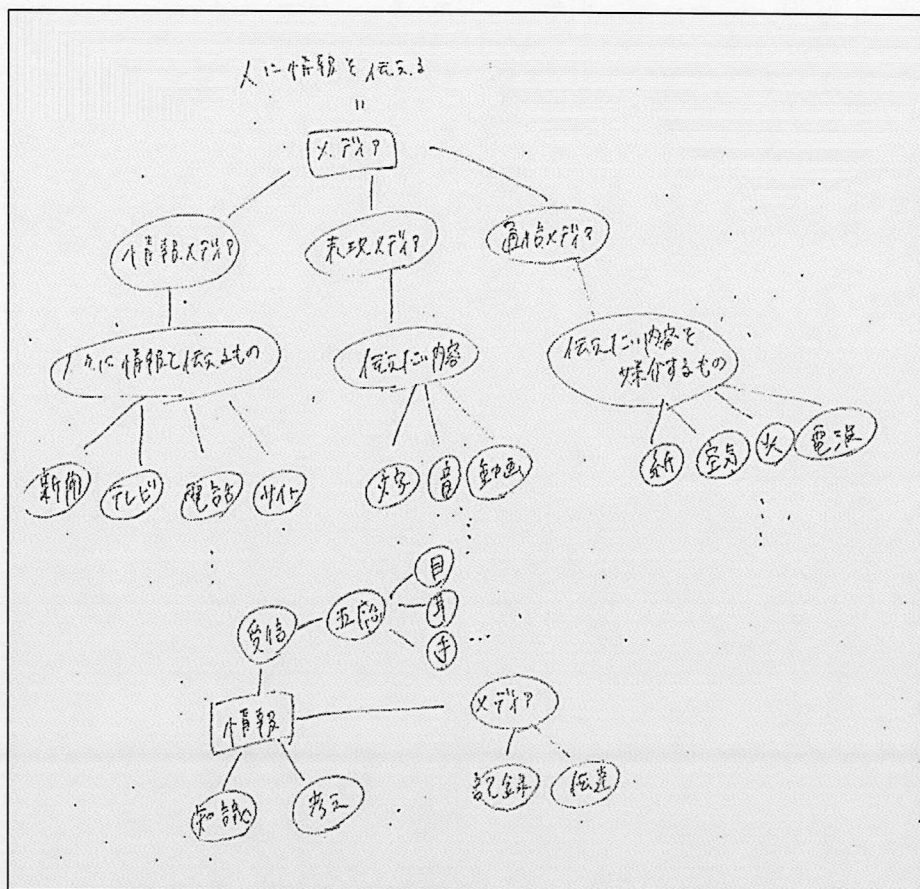 人に情報を伝える
=
メディア
情報メディア
表現メディア
通信メディア
人々に情報を伝えるもの
伝えたい内容
伝えたい内容を
媒介するもの
新聞
テレビ
電話
サイト
文字
音
動画
紙
空気
火
電波
受信
五感
目
耳
手
情報
メディア
知識
考え
記録
伝達